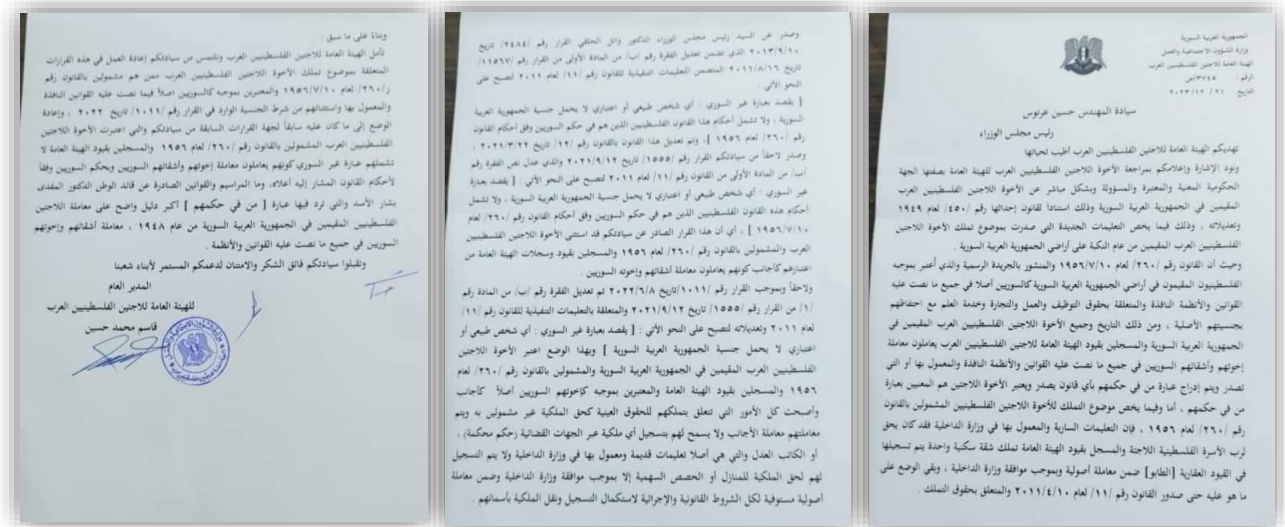 الجمهورية العربية السورية
وزارة الشؤون الاجتماعية والعمل
الهيئة العامة للاجئين الفلسطينيين العرب
الرقم : ٣٧٤٥/ص
التاريخ ٢١ / ١٢ / ٢٠٢٣
سيادة المهندس حسين عرنوس
رئيس مجلس الوزراء
تهديكم الهيئة العامة للاجئين الفلسطينيين العرب أطيب تحياتها
ونود الإشارة وإعلامكم بمراجعة الأخوة اللاجئين الفلسطينيين العرب للهيئة العامة بصفتها الجهة
الحكومية المعنية والمعتبرة والمسؤولة وبشكل مباشر عن الأخوة اللاجئين الفلسطينيين العرب
المقيمين في الجمهورية العربية السورية وذلك استناداً لقانون إحداثها رقم /٤٥٠/ لعام ١٩٤٩
وتعديلاته ، وذلك فيما يخص التعليمات الجديدة التي صدرت بموضوع تملك الأخوة اللاجئين
الفلسطينيين العرب المقيمين من عام النكبة على أراضي الجمهورية العربية السورية .
وحيث أن القانون رقم /٢٦٠/ لعام ١٩٥٦/٧/١٠ والمنشور بالجريدة الرسمية والذي أعتبر بموجبه
الفلسطينيون المقيمون في أراضي الجمهورية العربية السورية كالسوريين أصلا في جميع ما نصت عليه
القوانين والأنظمة النافذة والمتعلقة بحقوق التوظيف والعمل والتجارة وخدمة العلم مع احتفاظهم
بجنسيتهم الأصلية ، ومن ذلك التاريخ وجميع الأخوة اللاجئين الفلسطينيين العرب المقيمين في
الجمهورية العربية السورية والمسجلين بقيود الهيئة العامة للاجئين الفلسطينيين العرب يعاملون معاملة
إخوتهم وأشقائهم السوريين في جميع ما نصت عليه القوانين والأنظمة النافذة والمعمول بها أو التي
تصدر ويتم إدراج عبارة من في حكمهم بأي قانون يصدر ويعتبر الأخوة اللاجئين هم المعنيين بعبارة
من في حكمهم ، أما وفيما يخص موضوع التملك للأخوة اللاجئين الفلسطينيين المشمولين بالقانون
رقم /٢٦٠/ لعام ١٩٥٦ ، فإن التعليمات السارية والمعمول بها في وزارة الداخلية فقد كان يحق
لرب الأسرة الفلسطينية اللاجئة والمسجل بقيود الهيئة العامة تملك شقة سكنية واحدة يتم تسجيلها
في القيود العقارية [الطابو] ضمن معاملة أصولية وبموجب موافقة وزارة الداخلية ، وبقي الوضع على
ما هو عليه حتى صدور القانون رقم /١١/ لعام ٢٠١١/٤/١٠ والمتعلق بحقوق التملك .
وصدر عن السيد رئيس مجلس الوزراء الدكتور وائل الحلقي القرار رقم /٢٤٨٤/ تاريخ
٢٠١٣/٩/١٠ الذي تضمن تعديل الفقرة رقم /ب/ من المادة الأولى من القرار رقم /١١٥٦٧/
تاريخ ٢٠١١/٨/١٦ المتضمن التعليمات التنفيذية للقانون رقم /١١/ لعام ٢٠١١ لتصبح على
النحو الآتي :
[ يقصد بعبارة غير السوري : أي شخص طبيعي أو اعتباري لا يحمل جنسية الجمهورية العربية
السورية ، ولا تشمل أحكام هذا القانون الفلسطينيين الذين هم في حكم السوريين وفق أحكام القانون
رقم /٢٦٠/ لعام ١٩٥٦ ]، وتم تعديل هذا القانون بالقانون رقم /١٢/ تاريخ ٢٠٢١/٣/٢٢ ،
وصدر لاحقاً من سيادتكم القرار رقم /١٥٥٥/ تاريخ ٢٠٢١/٩/١٢ والذي عدل نص الفقرة رقم
/ب/ من المادة الأولى من القانون رقم /١١/ لعام ٢٠١١ لتصبح على النحو الآتي : [ يقصد بعبارة
غير السوري : أي شخص طبيعي أو اعتباري لا يحمل جنسية الجمهورية العربية السورية ، ولا تشمل
أحكام هذه القانون الفلسطينيين الذين هم في حكم السوريين وفق أحكام القانون رقم /٢٦٠/ لعام
١٩٥٦/٧/١٠ ] ، أي أن هذا القرار الصادر عن سيادتكم قد استثنى الأخوة اللاجئين الفلسطينيين
العرب والمشمولين بالقانون رقم /٢٦٠/ لعام ١٩٥٦ والمسجلين بقيود وسجلات الهيئة العامة من
اعتبارهم كأجانب كونهم يعاملون معاملة أشقائهم وإخوته السوريين .
ولاحقاً وبموجب القرار رقم /١٠١١/تاريخ ٢٠٢٢/٦/٨ تم تعديل الفقرة رقم /ب/ من المادة رقم
/١/ من القرار رقم /١٥٥٥/ تاريخ ٢٠٢١/٩/١٢ والمتعلقة بالتعليمات التنفيذية للقانون رقم /١١/
لعام ٢٠١١ وتعديلاته لتصبح على النحو الآتي : [ يقصد بعبارة غير السوري : أي شخص طبيعي أو
اعتباري لا يحمل جنسية الجمهورية العربية السورية ] وبهذا الوضع اعتبر الأخوة اللاجئين
الفلسطينيين العرب المقيمين في الجمهورية العربية السورية والمشمولين بالقانون رقم /٢٦٠/ لعام
١٩٥٦ والمسجلين بقيود الهيئة العامة والمعتبرين بموجبه كإخوتهم السوريين أصلاً كأجانب
وأصبحت كل الأمور التي تتعلق بتملكهم للحقوق العينية كحق الملكية غير مشمولين به ويتم
معاملتهم معاملة الأجانب ولا يسمح لهم بتسجيل أي ملكية عبر الجهات القضائية (حكم محكمة) ،
أو الكاتب العدل والتي هي أصلا تعليمات قديمة ومعمول بها في وزارة الداخلية ولا يتم التسجيل
لهم لحق الملكية للمنازل أو الحصص السهمية إلا بموجب موافقة وزارة الداخلية وضمن معاملة
أصولية مستوفية لكل الشروط القانونية والإجرائية لاستكمال التسجيل ونقل الملكية بأسمائهم .
وبناءً على ما سبق :
تأمل الهيئة العامة للاجئين الفلسطينيين العرب وتلتمس من سيادتكم إعادة العمل في هذه القرارات
المتعلقة بموضوع تملك الأخوة اللاجئين الفلسطينيين العرب ممن هم مشمولين بالقانون رقم
ر/٢٦٠/ لعام ١٩٥٦/٧/١٠ والمعتبرين بموجبه كالسوريين أصلاً فيما نصت عليه القوانين النافذة
والمعمول بها واستثنائهم من شرط الجنسية الوارد في القرار رقم /١٠١١/ تاريخ ٢٠٢٢ ، وإعادة
الوضع إلى ما كان عليه سابقاً لجهة القرارات السابقة من سيادتكم والتي اعتبرت الأخوة اللاجئين
الفلسطينيين العرب المشمولين بالقانون رقم /٢٦٠/ لعام ١٩٥٦ والمسجلين بقيود الهيئة العامة لا
تشملهم عبارة غير السوري كونهم يعاملون معاملة إخوتهم وأشقائهم السوريين وبحكم السوريين وفقاً
لأحكام القانون المشار إليه أعلاه، وما المراسيم والقوانين الصادرة عن قائد الوطن الدكتور المفدى
بشار الأسد والتي ترد فيها عبارة [ من في حكمهم ] أكبر دليل واضح على معاملة اللاجئين
الفلسطينيين المقيمين في الجمهورية العربية السورية من عام ١٩٤٨ ، معاملة أشقائهم وإخوتهم
السوريين في جميع ما نصت عليه القوانين والأنظمة .
وتقبلوا سيادتكم فائق الشكر والامتنان لدعمكم المستمر لأبناء شعبنا
المدير العام
للهيئة العامة للاجئين الفلسطينيين العرب
قاسم محمد حسين